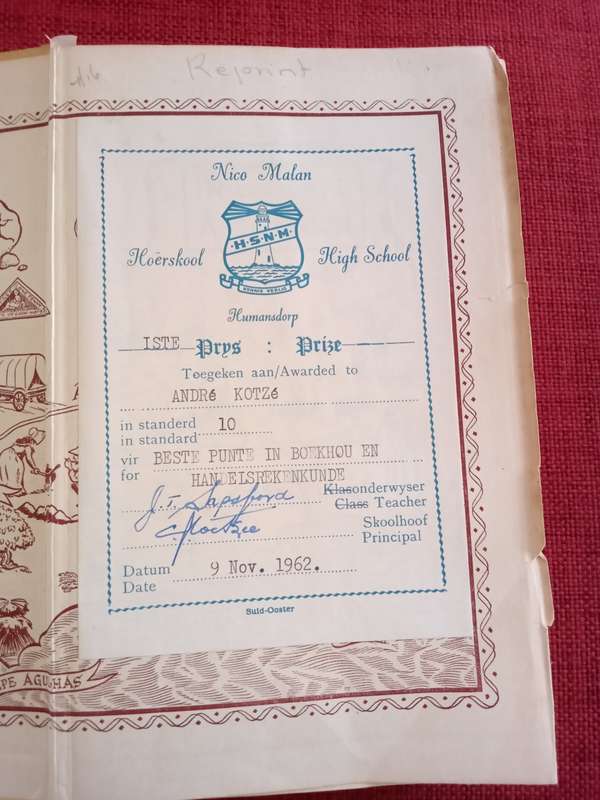 Reprint
Nico Malan
H.S.N.M
Hoërskool High School
KENNIS VERLIG
Humansdorp
ISTE Prys : Prize
Toegeken aan/Awarded to
ANDRé KOTZé
in standerd 10
in standard
vir BESTE PUNTE IN BOEKHOU EN
for HANDELSREKENKUNDE
J. T. Sapsford Klasonderwyser
Class Teacher
Skoolhoof
Principal
Datum 9 Nov. 1962.
Date
Suid-Ooster
PE AGULHAS